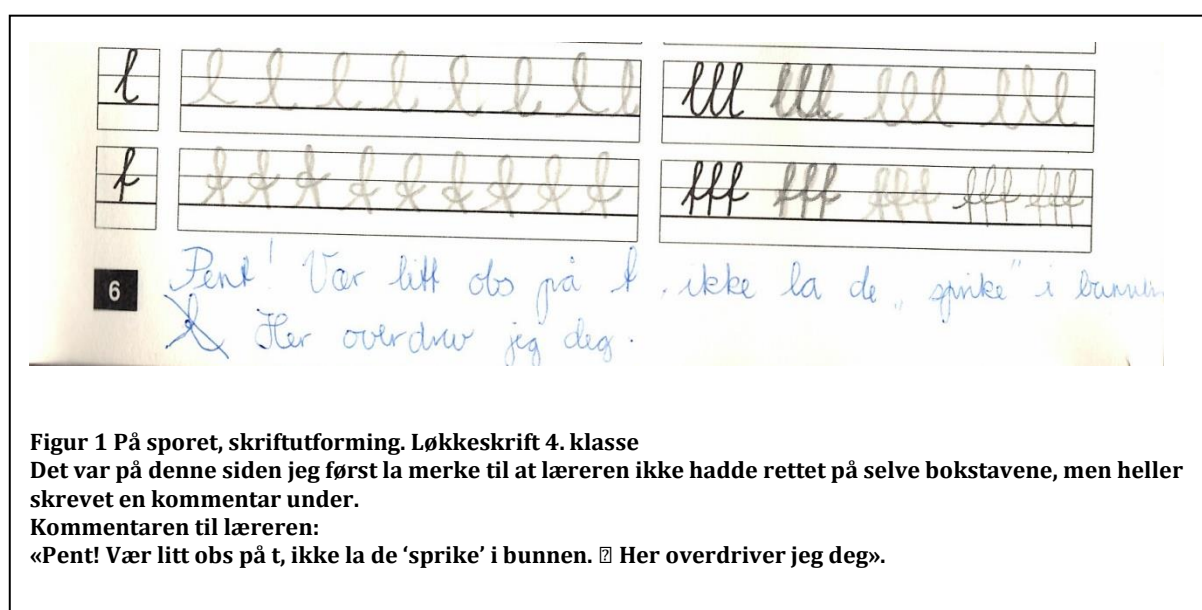 l l l l l l l l l lll lll lll lll
t t t t t t t t t t ttt ttt ttt ttt ttt
6 Pent! Vær litt obs på t, ikke la de „sprike" i bunnen
t Her overdriv jeg deg.
Figur 1 På sporet, skriftutforming. Løkkeskrift 4. klasse
Det var på denne siden jeg først la merke til at læreren ikke hadde rettet på selve bokstavene, men heller
skrevet en kommentar under.
Kommentaren til læreren:
«Pent! Vær litt obs på t, ikke la de ‘sprike’ i bunnen. ⍰ Her overdriver jeg deg».